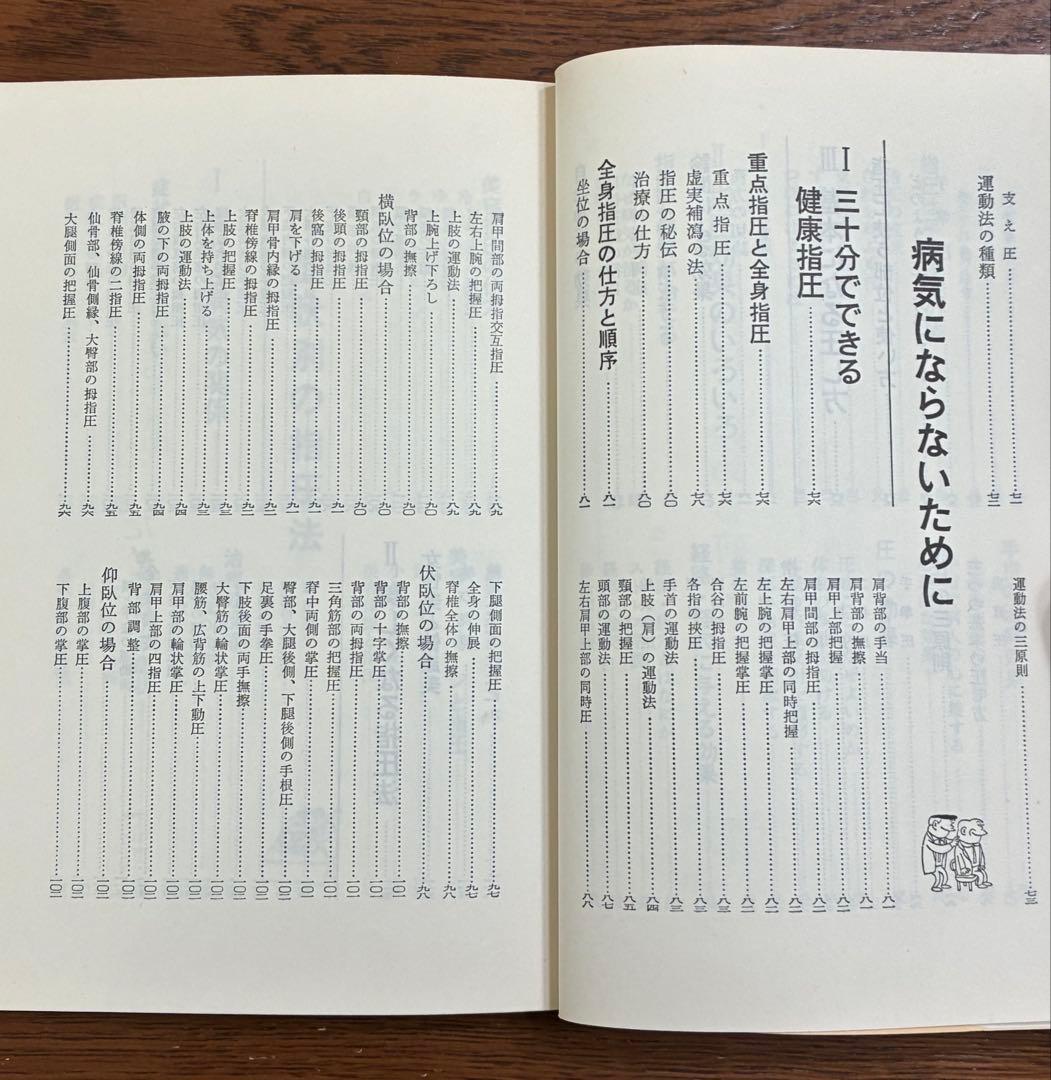 支え圧……七一
運動法の種類……七二
運動法の三原則……七三
病気にならないために
Ⅰ 三十分でできる
健康指圧……七六
重点指圧と全身指圧……七六
重点指圧……七六
虚実補瀉の法……七八
指圧の秘伝……八〇
治療の仕方……八〇
全身指圧の仕方と順序……八一
坐位の場合……八一
肩背部の手当……八一
肩背部の撫擦……八一
肩甲上部把握……八二
肩甲間部の拇指圧……八二
左右肩甲上部の同時把握……八二
左上腕の把握掌圧……八二
左前腕の把握掌圧……八二
合谷の拇指圧……八三
各指の挟圧……八三
手首の運動法……八三
上肢（肩）の運動法……八四
頸部の把握圧……八五
頭部の運動法……八七
左右肩甲上部の同時圧……八八
肩甲間部の両拇指交互指圧……八九
左右上腕の把握圧……八九
上肢の運動法……八九
上腕上げ下ろし……九〇
背部の撫擦……九〇
横臥位の場合……九〇
頸部の拇指圧……九一
後頭の拇指圧……九一
後窩の拇指圧……九一
肩を下げる……九二
肩甲骨内縁の拇指圧……九二
脊椎傍線の拇指圧……九二
上肢の把握圧……九三
上体を持ち上げる……九三
上肢の運動法……九四
腋の下の両拇指圧……九四
体側の両拇指圧……九五
脊椎傍線の二指圧……九五
仙骨部、仙骨側縁、大臀部の拇指圧……九六
大腿側面の把握圧……九六
下腿側面の把握圧……九七
全身の伸展……九七
脊椎全体の撫擦……九八
伏臥位の場合……九八
背部の撫擦……一〇一
背部の十字掌圧……一〇一
背部の両拇指圧……一〇一
三角筋部の把握圧……一〇一
脊中両側の掌圧……一〇一
臀部、大腿後側、下腿後側の手根圧……一〇二
足裏の手拳圧……一〇二
下肢後面の両手撫擦……一〇二
大臀筋の輪状掌圧……一〇二
腰筋、広背筋の上下動圧……一〇二
肩甲部の輪状掌圧……一〇二
肩甲上部の四指圧……一〇二
背部調整……一〇二
仰臥位の場合……一〇二
上腹部の掌圧……一〇二
下腹部の掌圧……一〇二